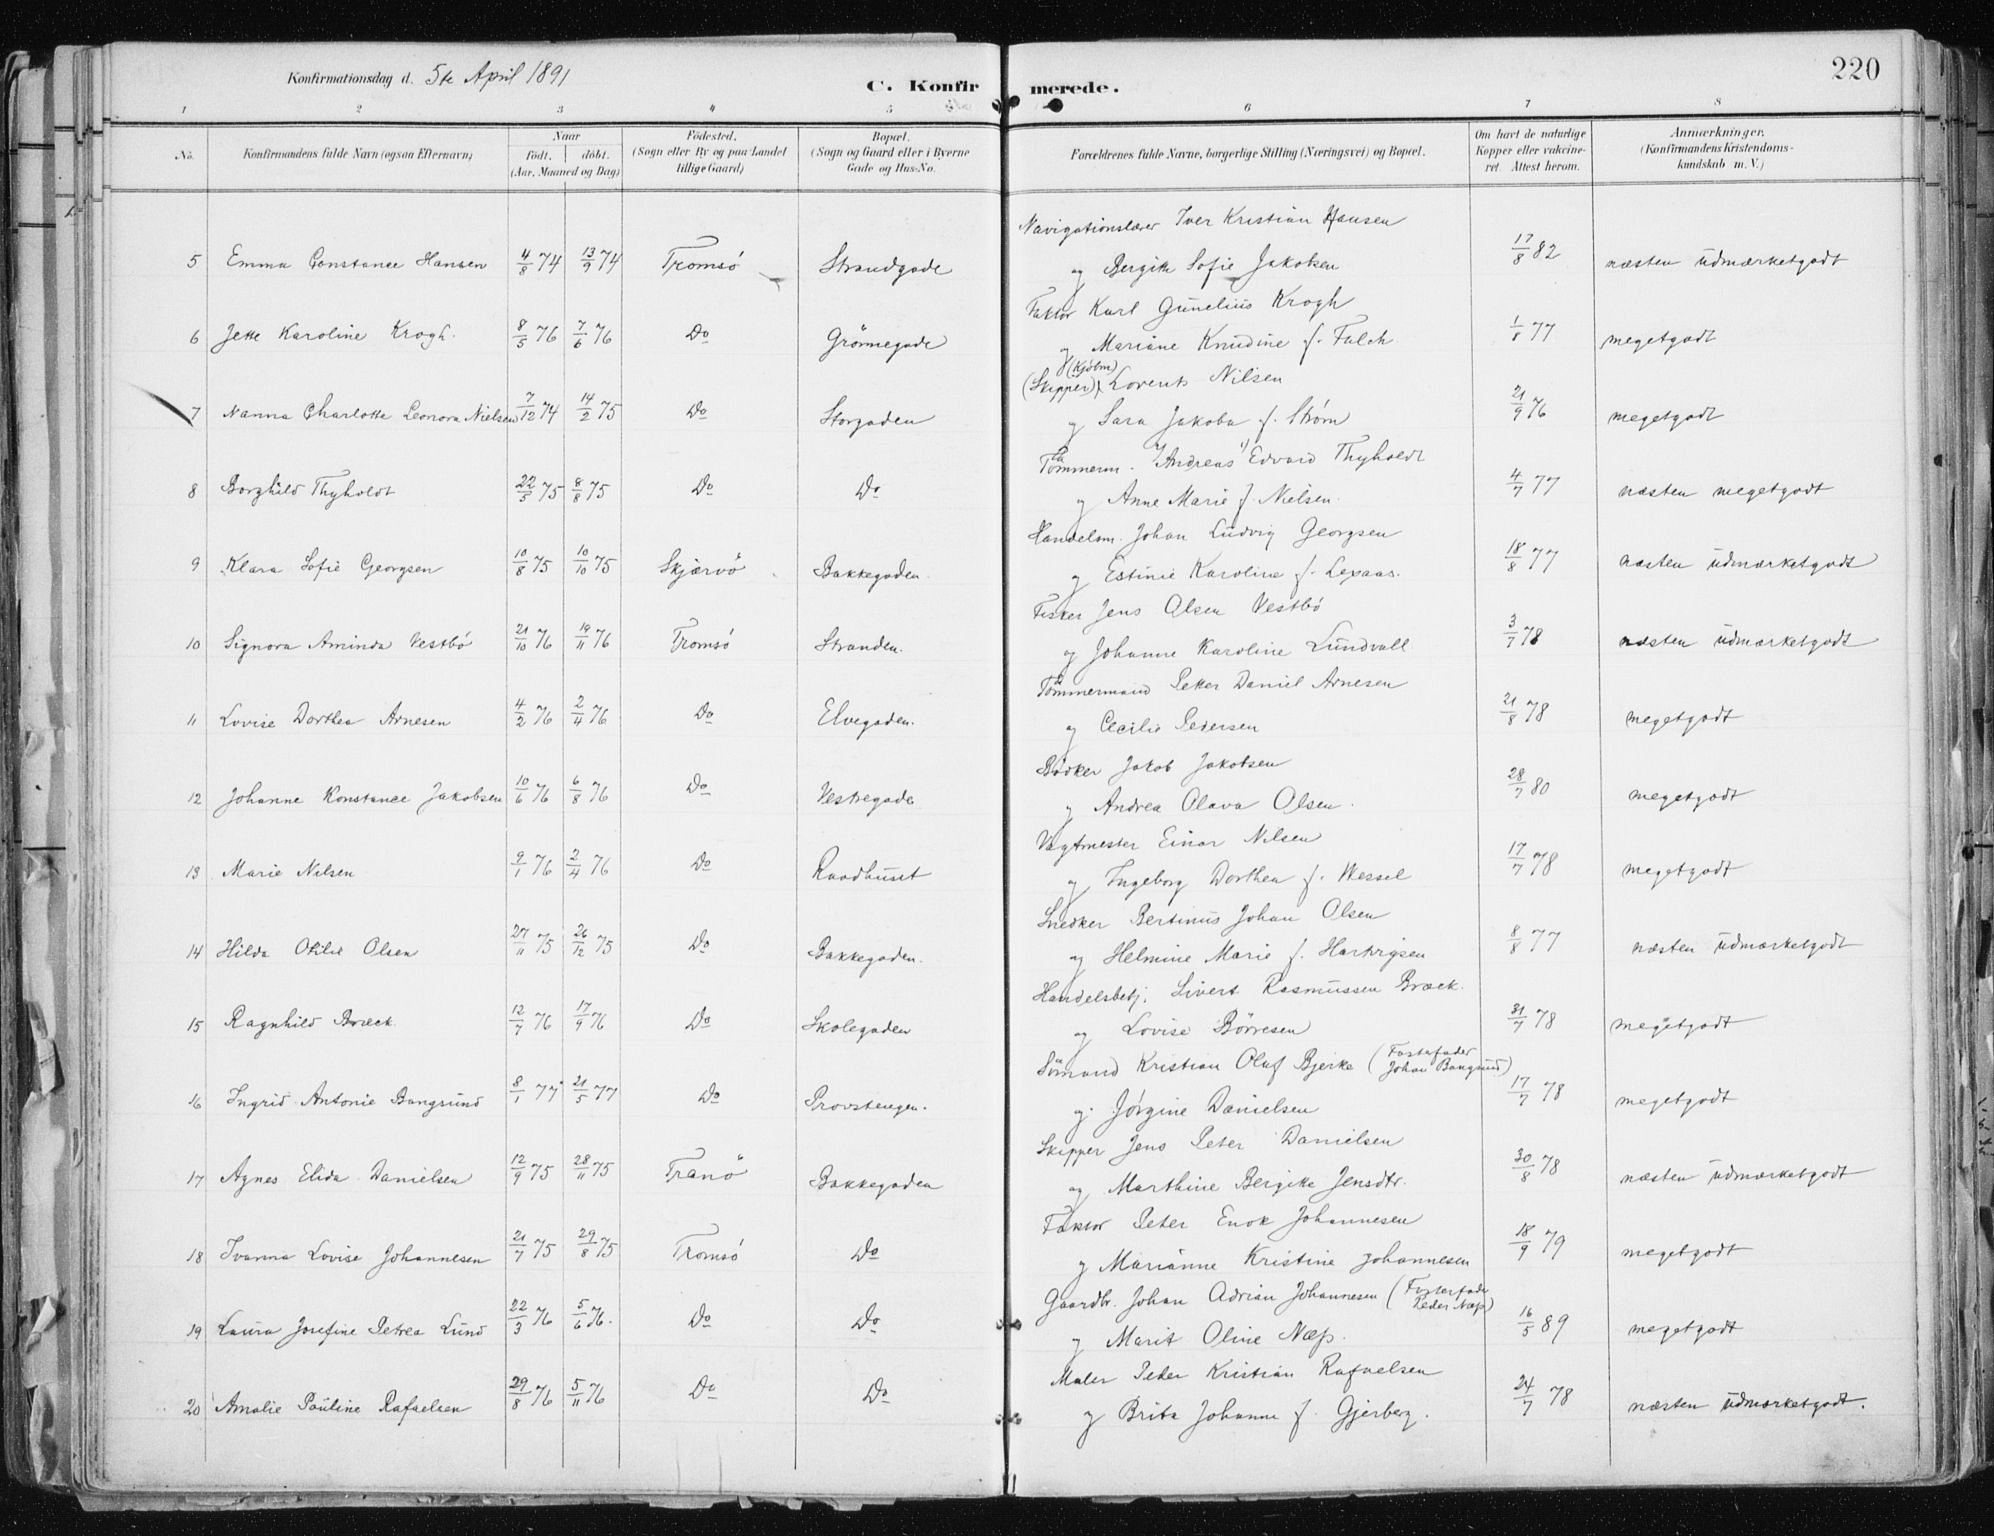 Konfirmationsdag d. 5te April 1891
C. Konfirmerede.
220
1 2 3 4 5 6 7 8
No. Konfirmandens fulde Navn (ogsaa Efternavn) Naar født. døbt. (Aar, Maaned og Dag) Fødested. (Sogn eller By og paa Landet tillige Gaard) Bopæl. (Sogn og Gaard eller i Byerne Gade og Hus-No. Forældrenes fulde Navne, borgerlige Stilling (Næringsvei) og Bopæl. Om havt de naturlige Kopper eller vakcineret. Attest herom. Anmærkninger. (Konfirmandens Kristendomskundskab m. V.)
Navigationslærer Iver Kristian Hansen
5 Emma Constance Hansen 4/8 74 13/9 74 Tromsö Strandgade og Bergitte Sofie Jakobsen 17/8 82 næsten udmærketgodt
Faktor Karl Gunelius Krogh
6 Jette Karoline Krogh. 8/5 76 7/6 76 Do Grönnegade og Mariane Knudine f. Falch. 1/8 77 megetgodt
(Skipper) (Kjøbm) Lorents Nilsen
7 Nanna Charlotte Leonora Nielsen 7/12 74 14/2 75 Do Storgaden og Sara Jakoba f. Strøm 21/9 76 megetgodt
Tömmerm. Andreas Edvard Thyholdt
8 Borghild Thyholdt 22/5 75 8/8 75 Do Do og Anne Marie f. Nielsen. 4/7 77 næsten megetgodt
Handelsm. Johan Ludvig Georgsen
9 Klara Sofie Georgsen 10/8 75 10/10 75 Skjærvö Bakkegaden. og Estinie Karoline f. Lexaas. 18/8 77 næsten udmærketgodt
Fisker Jens Olsen Vestbö
10 Signora Aminda Vestbö 21/10 76 19/11 76 Tromsö Stranden. og Johanne Karoline Lundvall 3/7 78 næsten udmærketgodt
Tömmermand Petter Daniel Arnesen
11 Lovise Dorthea Arnesen 4/2 76 2/4 76 Do Elvegaden. og Cecilie Pedersen 21/8 78 megetgodt
Bödker Jakob Jakobsen
12 Johanne Konstance Jakobsen 10/6 76 6/8 76 Do Vestregade og Andrea Olava Olsen. 28/7 80 megetgodt
Vagtmester Einar Nilsen
13 Marie Nilsen 9/1 76 2/4 76 Do Raadhuset og Ingeborg Dorthea f. Wessel 17/7 78 megetgodt
Snedker Bertinus Johan Olsen
14 Hilda Otilie Olsen 27/11 75 26/12 75 Do Bakkegaden. og Helmine Marie f. Hartvigsen 8/8 77 næsten udmærketgodt
Handelsbetj. Sivert Rasmussen Bræck.
15 Ragnhild Bræck 12/7 76 17/9 76 Do Skolegaden og Lovise Börresen 31/7 78 megetgodt
Sömand Kristian Olaf Bjerke (Fosterfader Johan Bangsund)
16 Ingrid Antonie Bangsund 8/1 77 21/5 77 Do Provstengen. og Jörgine Danielsen 17/7 78 megetgodt
Skipper Jens Peter Danielsen
17 Agnes Elida Danielsen 12/9 75 28/11 75 Tranö Bakkegaden og Marthine Bergitte Jensdtr. 30/8 78 næsten udmærketgodt
Faktor Peter Enok Johannesen
18 Ivanna Lovise Johannesen 21/7 75 29/8 75 Tromsö Do og Marianne Kristine Johannesen 18/9 79 megetgodt
Gaardbr. Johan Adrian Johannesen (Fosterfader Peder Næss)
19 Laura Josefine Petrea Lund 22/3 76 5/6 76. Do Do og Marit Oline Næss. 16/5 89 megetgodt
Maler Peder Kristian Rafaelsen
20 Amalie Pauline Rafaelsen 29/8 76 5/11 76 Do Do og Brita Johanne f. Gjerberg. 24/7 78 næsten udmærketgodt.